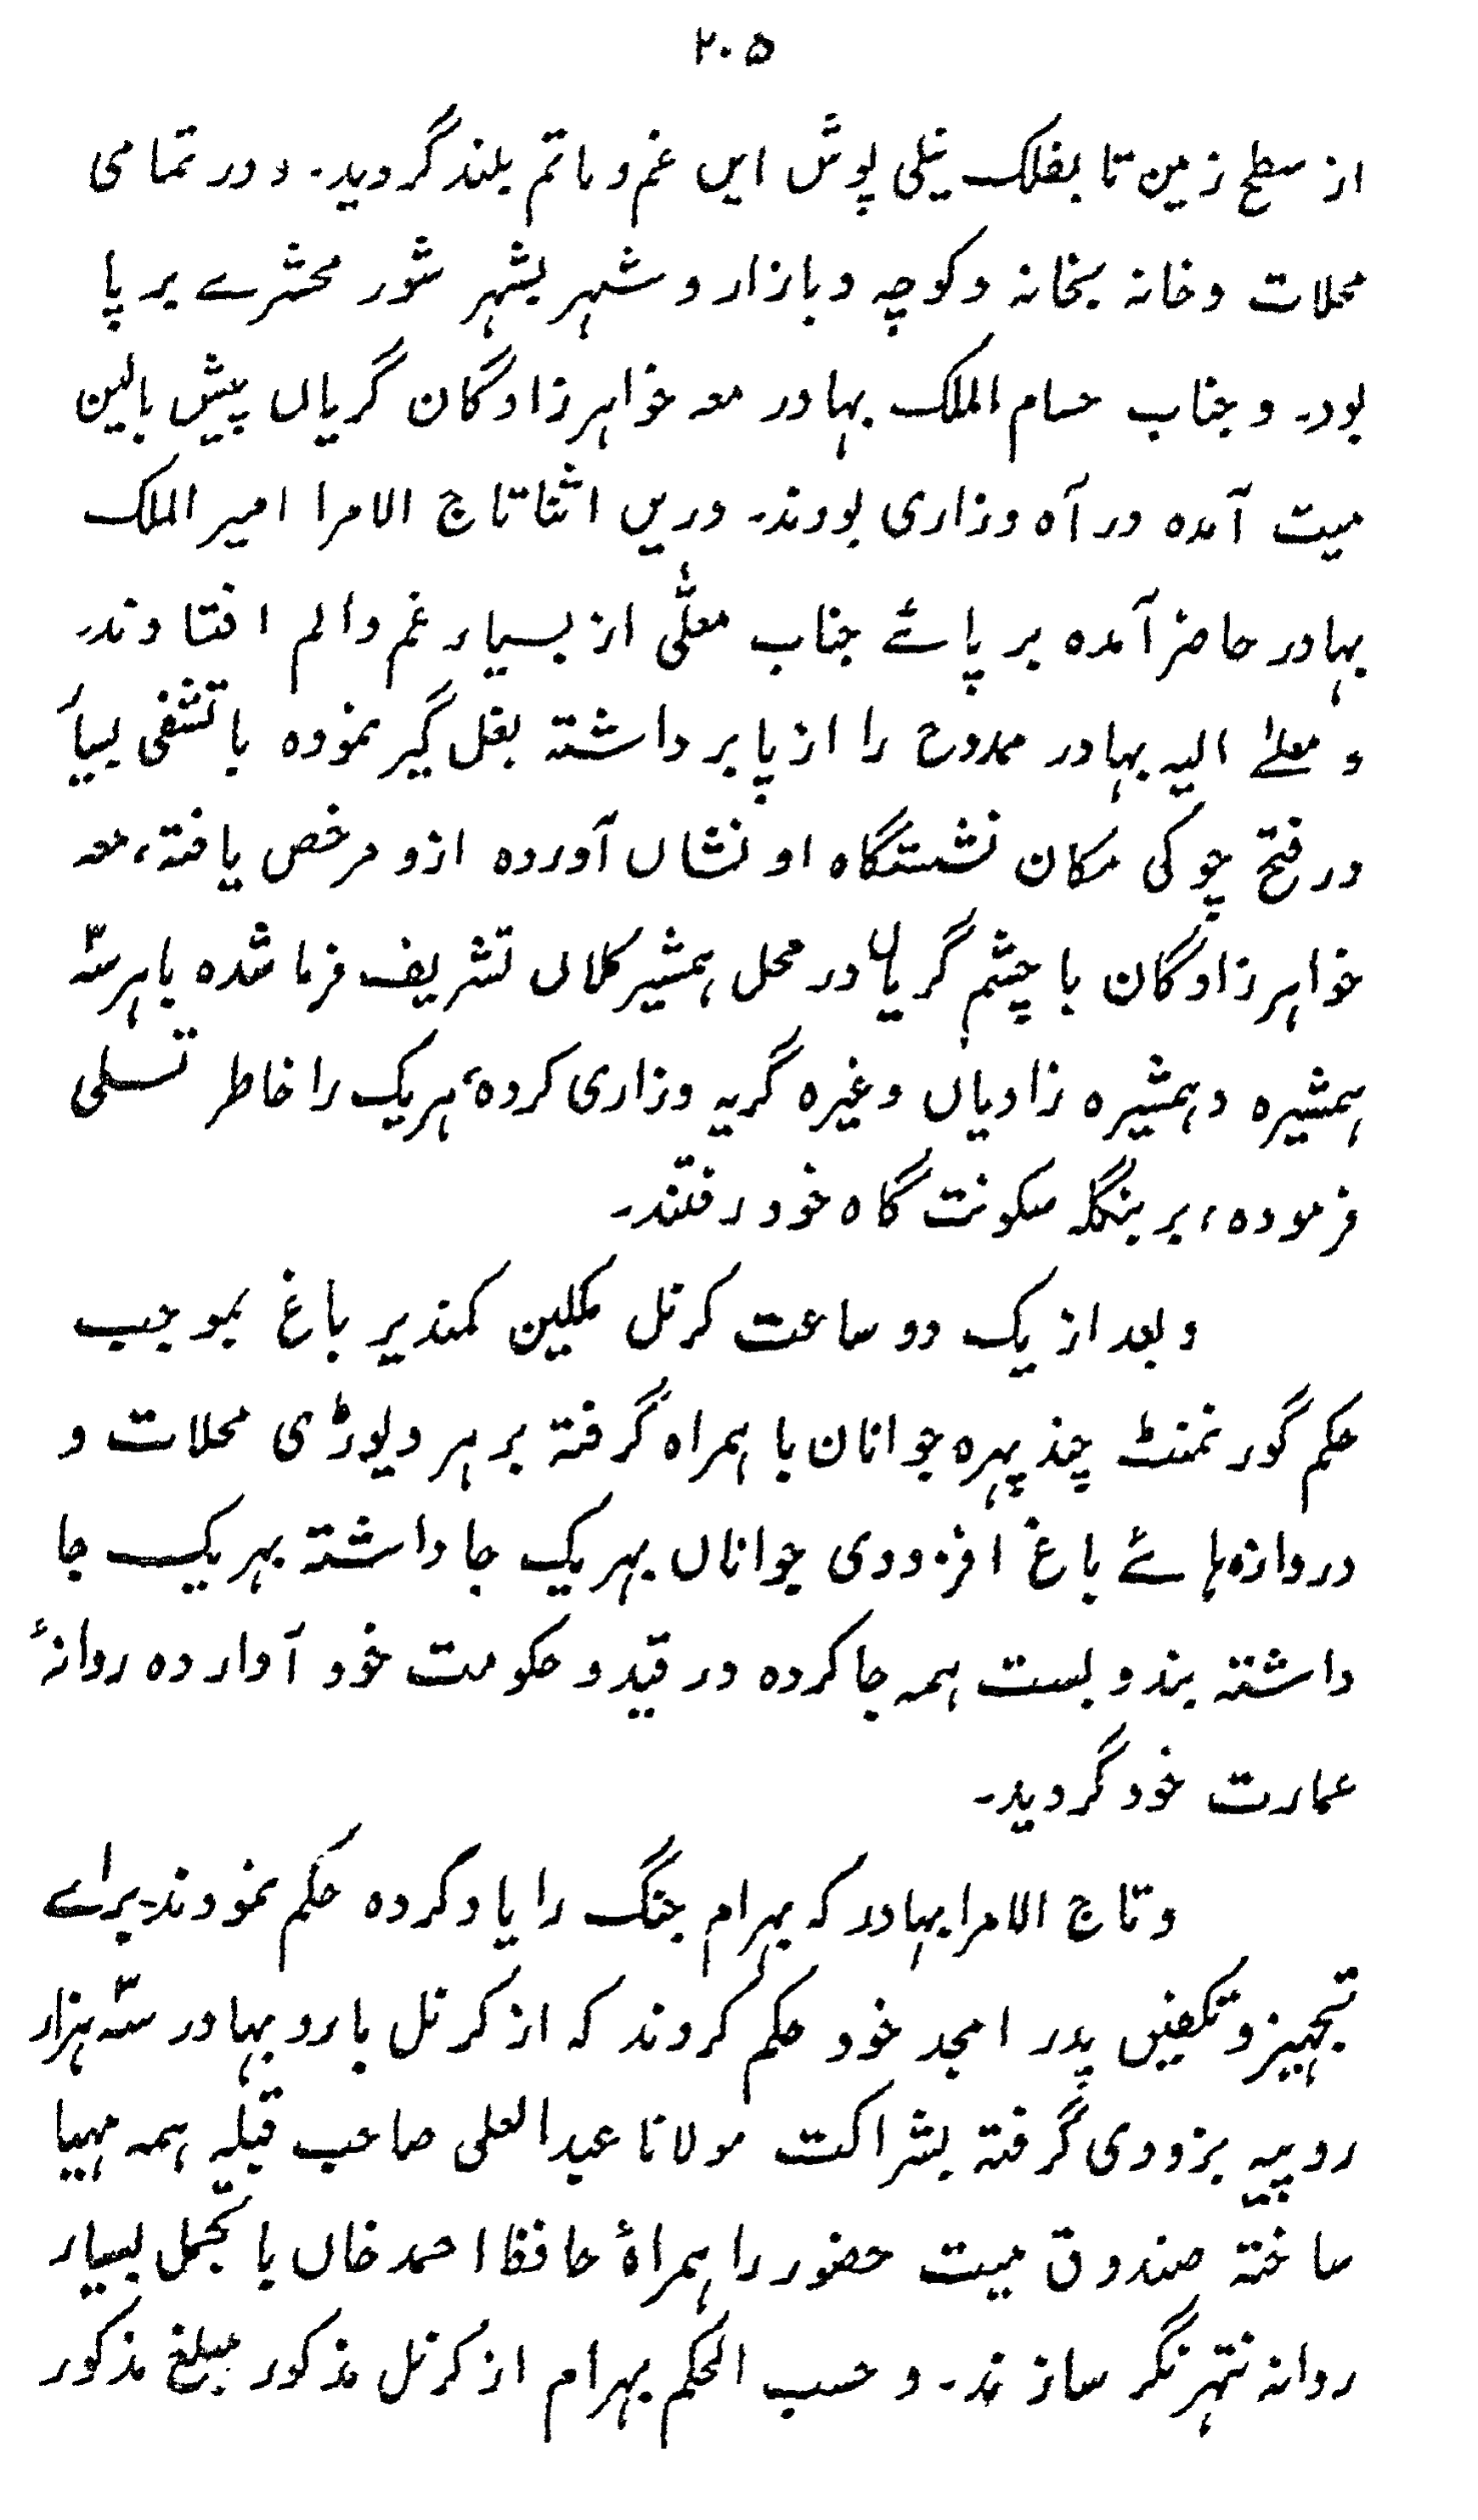 ۲۰۵
از سطح زمین تا بفلک نیلی پوش این غم و ماتم بلند گردید۔ و در تمامی
محلات و خانہ بخانہ و کوچہ و بازار و شہر بشہر شور محشرے برپا
بود۔ و جناب حسام الملک بہادر معہ خواہرزادگان گریاں پیش بالین
میت آمدہ در آہ و زاری بودند۔ دریں اثنا تاج الامرا امیر الملک
بہادر حاضر آمدہ بر پائے جناب معلّٰی از بسیار غم و الم افتادند۔
و معلےٰ الیہ بہادر ممدوح را از پا برداشتہ بغل گیر نمودہ با تشفی بسیار
در فتح چوکی مکان نشستگاہ او نشاں آوردہ ازو مرخص یافتہ، معہ
خواہرزادگان با چشم گریاں در محل ہمشیر کلاں تشریف فرما شدہ باہر سہ
ہمشیرہ و ہمشیرہ زادیاں وغیرہ گریہ و زاری کردہ، ہریک را خاطر تسلی
فرمودہ، بر بنگلہ سکونت گاہ خود رفتند۔
و بعد از یک دو ساعت کرنل مکلین کمندیر باغ بموجب
حکم گورنمنٹ چند پہرہ جوانان باہمراہ گرفتہ بر ہر دیوڑی محلات و
دروازہ ہائے باغ افزودی جواناں بہریک جا داشتہ بہریک جا
داشتہ بندوبست ہمہ جا کردہ در قید و حکومت خود آواردہ روانہٴ
عمارت خود گردید۔
و تاج الامرا بہادر کہ بہرام جنگ را یاد کردہ حکم نمودند۔ براے
تجہیز و تکفین پدر امجد خود حکم کردند کہ از کرنل بارو بہادر سہ ہزار
روپیہ بزودی گرفتہ بشراکت مولانا عبدالعلی صاحب قبلہ ہمہ مہیا
ساختہ صندوق میت حضور را ہمراہٴ حافظ احمد خاں با تجمل بسیار
روانہ نتہرنگر سازند۔ و حسب الحکم بہرام از کرنل مذکور مبلغ مذکور